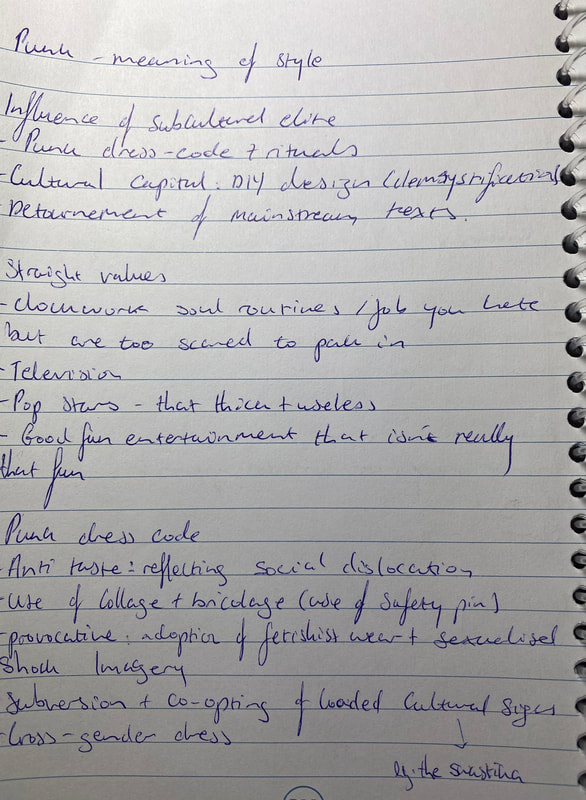 Punk - meaning of style
Influence of subcultural elite
- Punk dress-code + rituals
- Cultural Capital: DIY design (demystification)
- Detournement of mainstream texts.
Straight values
- clockwork soul routines / job you hate
but are too scared to pack in
- Television
- Pop stars - that thick + useless
- Good fun entertainment that isn't really
that fun
Punk dress code
- Anti taste: reflecting social dislocation
- use of Collage + bricolage (use of safety pin)
- provocative: adoption of fetishist wear + sexualised
shock Imagery
- Subversion + co-opting of loaded Cultural Signs
- Cross-gender dress
eg. the swastika